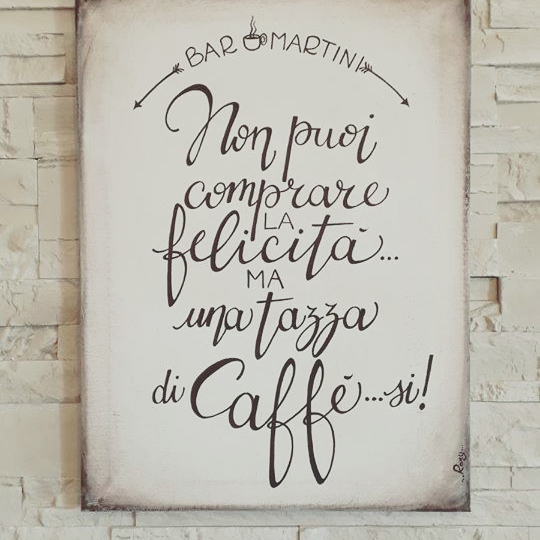 BAR MARTINI
Non puoi
comprare
LA
felicità...
MA
una tazza
di Caffè...si!
...Rosy...